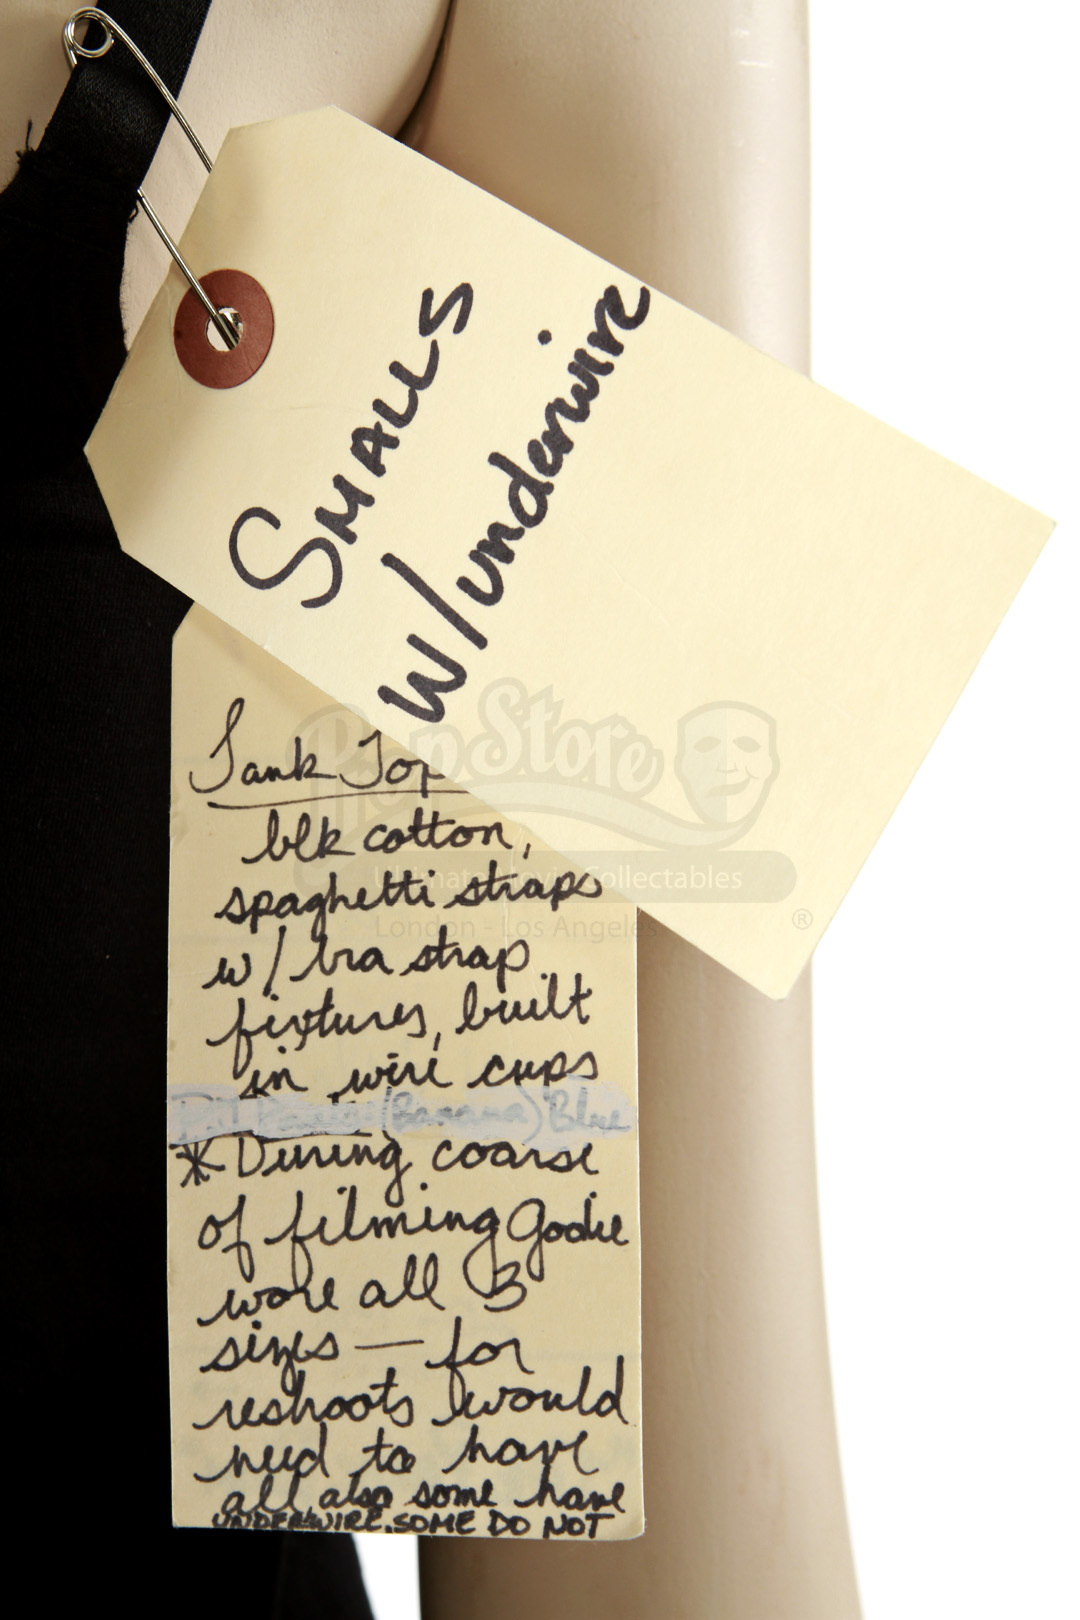 SMALLS
w/underwire
Tank Top
blk cotton,
spaghetti straps
w/ bra strap
fixtures, built
in wire cups
(Banana) Blue
* During coarse
of filming
wore all 3
sizes — for
reshoots would
need to have
all also some have
UNDERWIRE. SOME DO NOT
Prop Store
Ultimate Movie Collectables
London - Los Angeles
®